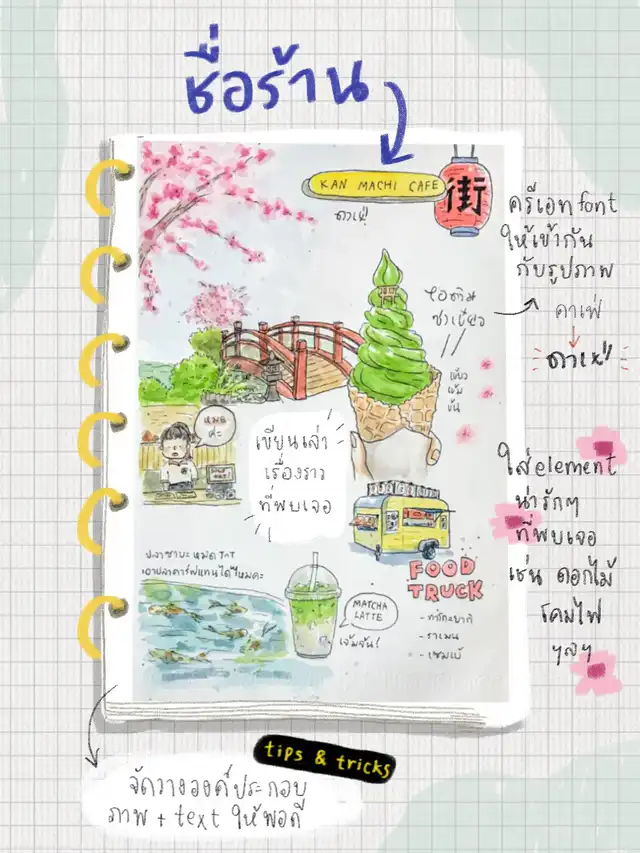 ชื่อร้าน
KAN MACHI CAFE
街
คาเฟ่
ครีเอท font
ให้เข้ากัน
กับรูปภาพ
คาเฟ่
คาเฟ่
ไอติม
ชาเขียว
เขียว
เข้ม
ข้น
หมด
ค่ะ
เขียนเล่า
เรื่องราว
ที่พบเจอ
ใส่ element
น่ารักๆ
ที่พบเจอ
เช่น ดอกไม้
โคมไฟ
ฯลฯ
ปลาซาบะ หมด TnT
เอาปลาคาร์ฟแทนได้ไหมคะ
FOOD
TRUCK
- ทาโกะยากิ
- ราเมน
- เซมเบ้
MATCHA
LATTE
เข้มข้น!
tips & tricks
จัดวางองค์ประกอบ
ภาพ + text ให้พอดี